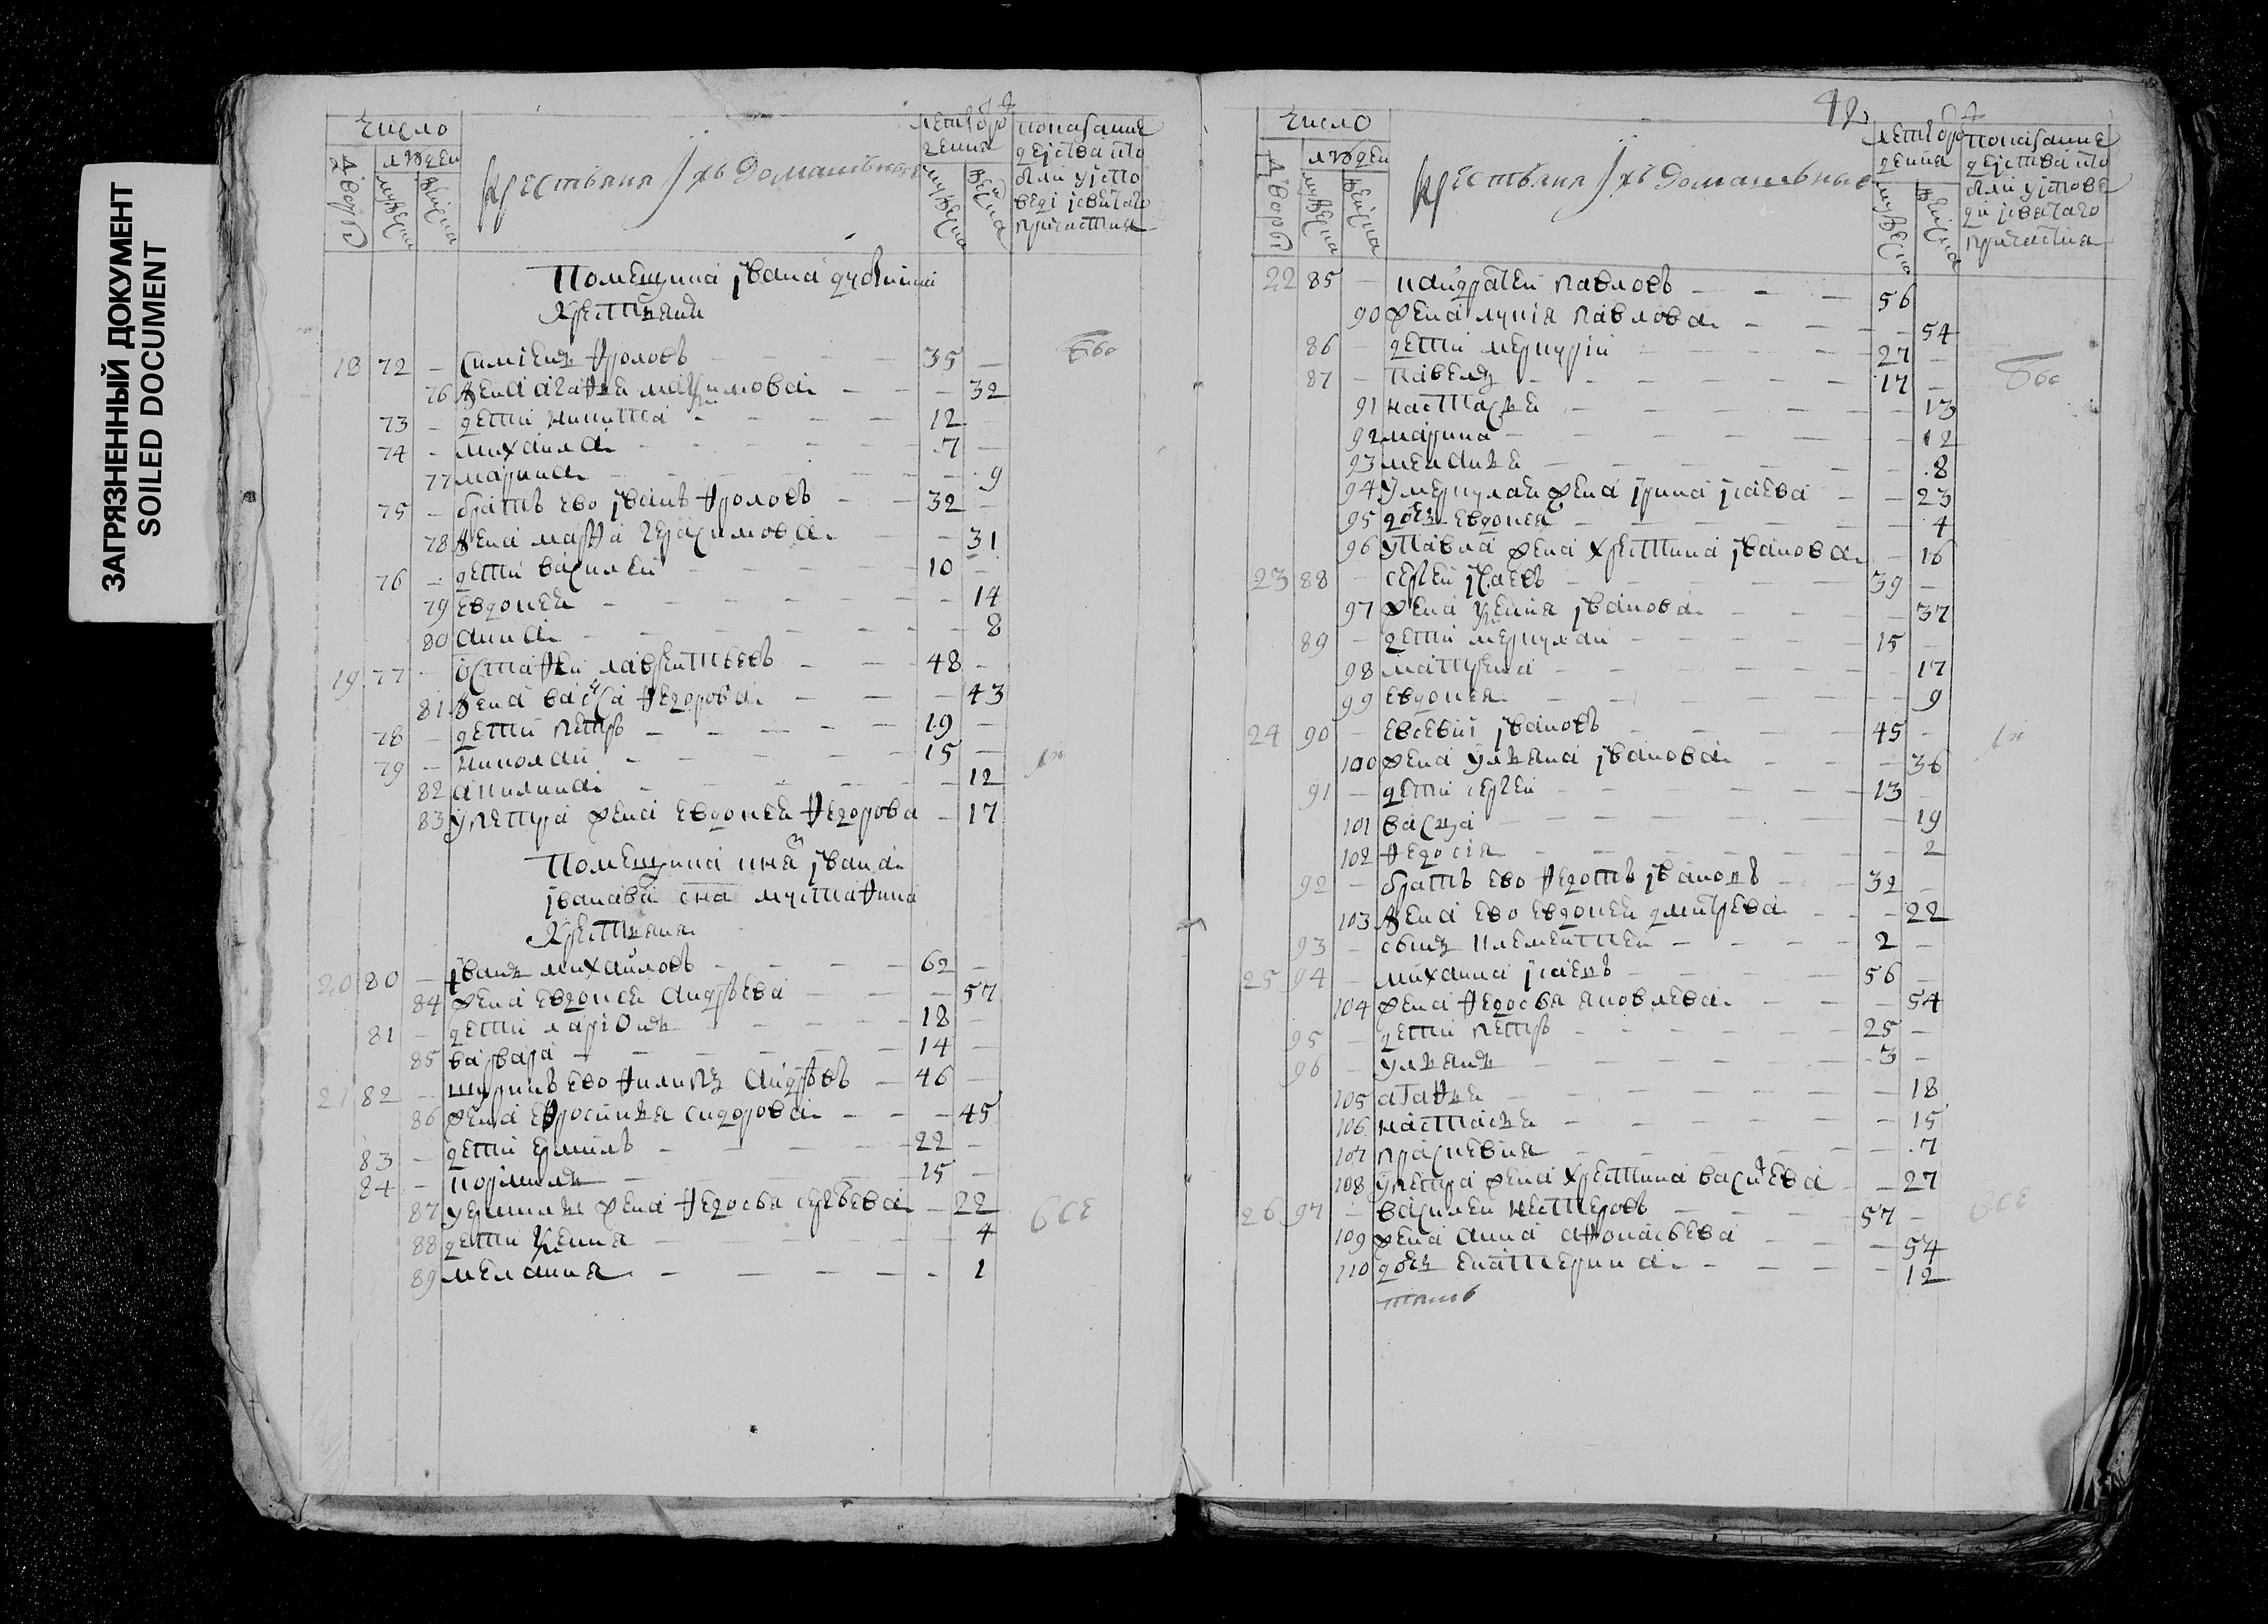 ЗАГРЯЗНЕННЫЙ ДОКУМЕНТ
SOILED DOCUMENT
число
людеи
дворы мужеска женска
крестьяня и ихъ домашные
летъ от рождения
мужеска женска
показание действа кто были у исповеди и святаго причастия
Помещика ивана
крестьяня
18 72 – симионъ фроловъ – 35 –
76 жена агафия максимова – 32
73 – дети никита – 12
74 – михаила – 7 –
77 марина – 9
75 – братъ ево иванъ фроловъ – 32 –
78 жена марфа герасимова – 31
76 – дети василей – 10 –
79 евдокея – 14
80 анна – 8
19 77 – остафей лаврентьевъ – 48 –
81 жена василиса федорова – 43
78 – дети петръ – 19 –
79 – николай – 15 –
82 акилина – 12
83 у петра жена евдокея федорова – 17
Помещика князя ивана
иванова сна мустафина
крестьяня
20 80 – иванъ михайловъ – 62 –
84 жена евдокея андреева – 57
81 – дети ларионъ – 18 –
85 варвара – 14 –
21 82 – шуринъ ево филипъ андреевъ – 46 –
86 жена ефросинья сидорова – 45
83 – дети ермилъ – 22 –
84 – кормилъ – 15 –
87 у ермила жена федосья сергеева – 22
88 дети ксения – 4
89 мелания – 1
все
42
число
людеи
дворы мужеска женска
крестьяня и ихъ домашные
летъ от рождения
мужеска женска
показание действа кто были у исповеди и святаго причастия
22 85 – кандратей павловъ – 56
90 жена лукия павлова – 54
86 – дети меркурий – 27 –
87 – павелъ – 17 –
91 настасья – 13
92 марина – 12
93 меланья – 8
94 у меркулая жена ирина исаева – 23
95 дочь евдокея – 4
96 у павла жена христина иванова – 16
23 88 – сергей исаевъ – 39 –
97 жена ксения иванова – 37
89 – дети меркулай – 15
98 матрена – 17
99 евдокея – 9
24 90 – евсевий ивановъ – 45 –
100 жена ульяна иванова – 36
91 – дети сергей – 13 –
101 васса – 19
102 федосия – 2
92 – братъ ево федотъ ивановъ – 32 –
103 жена ево евдокея дмитрева – 22
93 – сынъ клементей – 2 –
25 94 – михаила исаевъ – 56 –
104 жена федосья яковлева – 54
95 – дети петръ – 25 –
96 – ульянъ – 3 –
105 агафья – 18
106 настасья – 15
107 праскевия – 7
108 у петра жена христина васильева – 27
26 97 – василей нестеровъ – 57 –
109 жена анна афонасьева – 54
110 дочь екатерина – 12
все